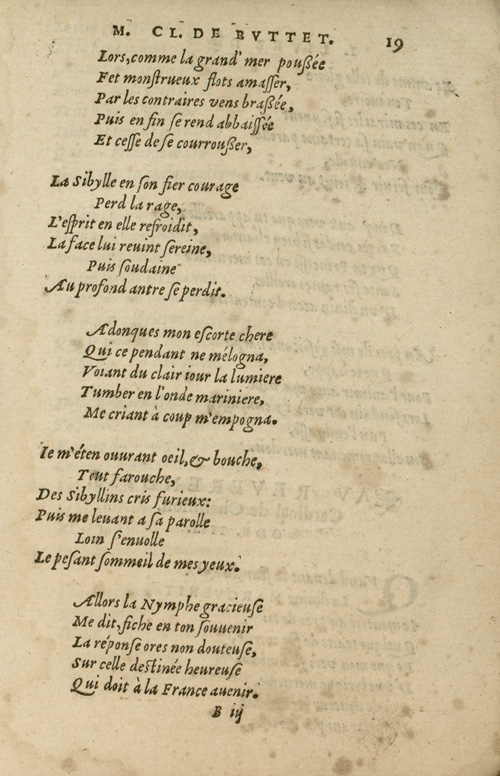 M. CL. DE BVTTET. 19
Lors, comme la grand' mer poußée
Fet monſtrueux flots amaſſer,
Par les contraires vens braßée,
Puis en fin ſe rend abbaiſſée
Et ceſſe de ſe courroußer,
La Sibylle en ſon fier courage
Perd la rage,
L'eſprit en elle refroidit,
La face lui reuint ſereine,
Puis ſoudaine
Au profond antre ſe perdit.
Adonques mon eſcorte chere
Qui ce pendant ne mélogna,
Voiant du clair iour la lumiere
Tumber en l'onde mariniere,
Me criant à coup m'empogna.
Ie m'éten ouurant oeil, & bouche,
Tout farouche,
Des Sibyllins cris furieux:
Puis me leuant a ſa parolle
Loin ſ'enuolle
Le peſant ſommeil de mes yeux.
Allors la Nymphe gracieuſe
Me dit, fiche en ton ſouuenir
La réponſe ores non douteuſe,
Sur celle deſtinée heureuſe
Qui doit à la France auenir.
B iij